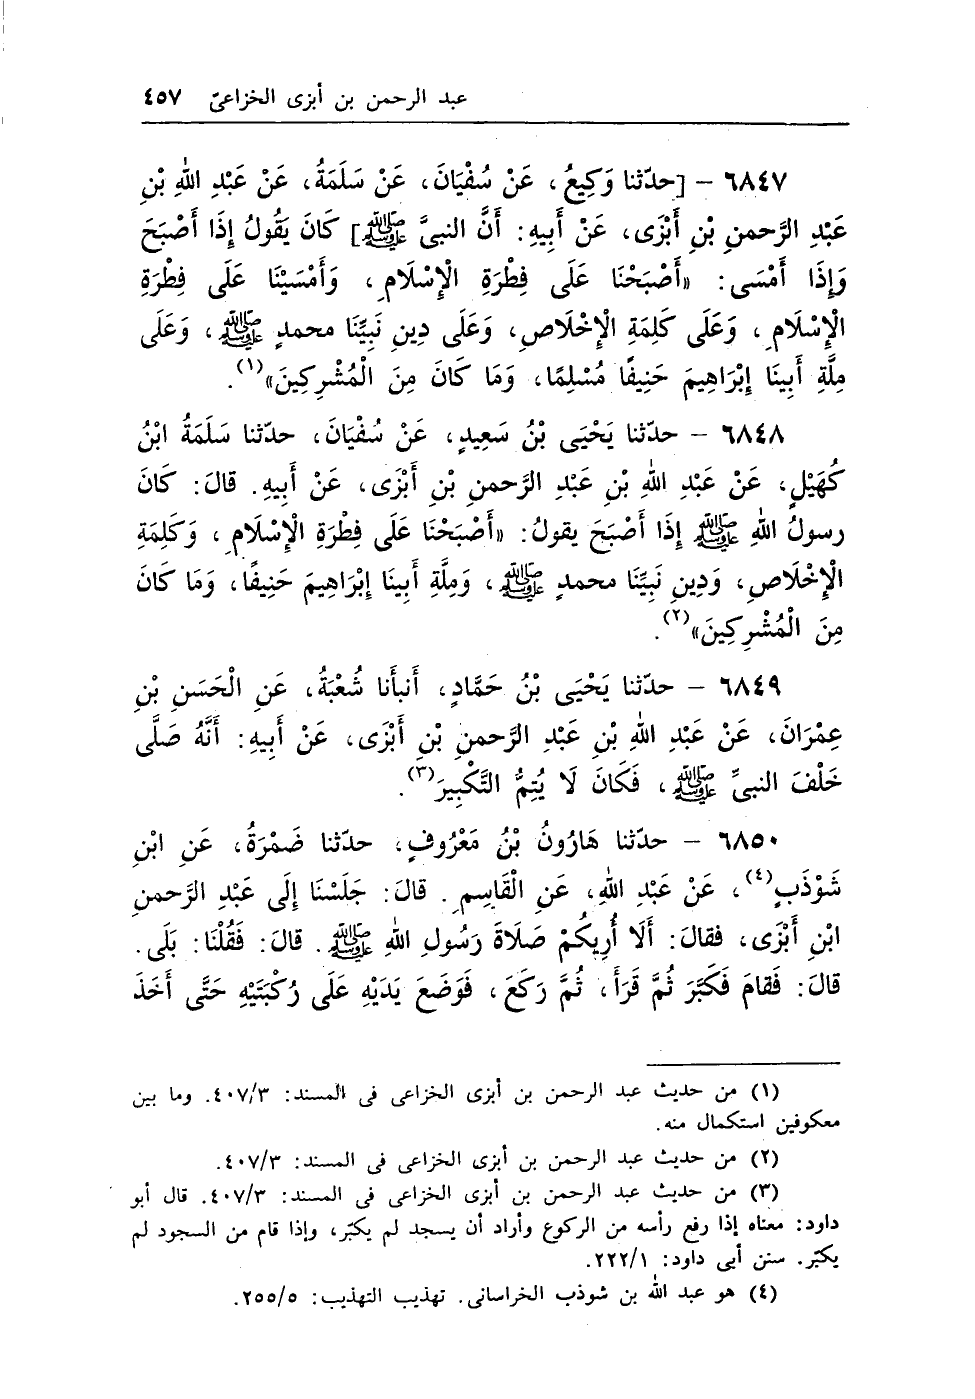 عبد الرحمن بن أبزى الخزاعىّ ٤٥٧
٦٨٤٧ - [حدّثنا وَكِيعُ، عَنْ سُفْيَانَ، عَنْ سَلَمَةُ، عَنْ عَبْدِ اللهِ بْنِ
عَبْدِ الرَّحمنِ بْنِ أَبْزَى، عَنْ أَبِيهِ: أَنَّ النبىَّ ﷺ] كَانَ يَقُولُ إِذَا أَصْبَحَ
وَإِذَا أَمْسَى: «أَصْبَحْنَا عَلَى فِطْرَةِ الْإِسْلَامِ، وَأَمْسَيْنَا عَلَى فِطْرَةِ
الْإِسْلَامِ، وَعَلَى كَلِمَةِ الْإِخْلَاصِ، وَعَلَى دِينِ نَبِيِّنَا محمدٍ ﷺ، وَعَلَى
مِلَّةِ أَبِينَا إِبْرَاهِيمَ حَنِيفًا مُسْلِمًا، وَمَا كَانَ مِنَ الْمُشْرِكِينَ»(١).
٦٨٤٨ - حدّثنا يَحْيَى بْنُ سَعِيدٍ، عَنْ سُفْيَانَ، حدّثنا سَلَمَةُ ابْنُ
كُهَيْلٍ، عَنْ عَبْدِ اللهِ بْنِ عَبْدِ الرَّحمنِ بْنِ أَبْزَى، عَنْ أَبِيهِ. قالَ: كَانَ
رسولُ اللهِ ﷺ إِذَا أَصْبَحَ يقولُ: «أَصْبَحْنَا عَلَى فِطْرَةِ الْإِسْلَامِ، وَكَلِمَةِ
الْإِخْلَاصِ، وَدِينِ نَبِيِّنَا محمدٍ ﷺ، وَمِلَّةِ أَبِينَا إِبْرَاهِيمَ حَنِيفًا، وَمَا كَانَ
مِنَ الْمُشْرِكِينَ»(٢).
٦٨٤٩ - حدّثنا يَحْيَى بْنُ حَمَّادٍ، أَنبأَنا شُعْبَةُ، عَنِ الْحَسَنِ بْنِ
عِمْرَانَ، عَنْ عَبْدِ اللهِ بْنِ عَبْدِ الرَّحمنِ بْنِ أَبْزَى، عَنْ أَبِيهِ: أَنَّهُ صَلَّى
خَلْفَ النبىِّ ﷺ، فَكَانَ لَا يُتِمُّ التَّكْبِيرَ(٣).
٦٨٥٠ - حدّثنا هَارُونُ بْنُ مَعْرُوفٍ، حدّثنا ضَمْرَةُ، عَنِ ابْنِ
شَوْذَبٍ(٤)، عَنْ عَبْدِ اللهِ، عَنِ الْقَاسِمِ. قالَ: جَلَسْنَا إِلَى عَبْدِ الرَّحمنِ
ابْنِ أَبْزَى، فقالَ: أَلَا أُرِيكُمْ صَلَاةَ رَسُولِ اللهِ ﷺ. قالَ: فَقُلْنَا: بَلَى.
قالَ: فَقامَ فَكَبَّرَ ثُمَّ قَرَأَ، ثُمَّ رَكَعَ، فَوَضَعَ يَدَيْهِ عَلَى رُكْبَتَيْهِ حَتَّى أَخَذَ
(١) من حديث عبد الرحمن بن أبزى الخزاعى فى المسند: ٤٠٧/٣. وما بين
معكوفين استكمال منه.
(٢) من حديث عبد الرحمن بن أبزى الخزاعى فى المسند: ٤٠٧/٣.
(٣) من حديث عبد الرحمن بن أبزى الخزاعى فى المسند: ٤٠٧/٣. قال أبو
داود: معناه إذا رفع رأسه من الركوع وأراد أن يسجد لم يكبّر، وإذا قام من السجود لم
يكبّر. سنن أبى داود: ٢٢٢/١.
(٤) هو عبد الله بن شوذب الخراسانى. تهذيب التهذيب: ٢٥٥/٥.